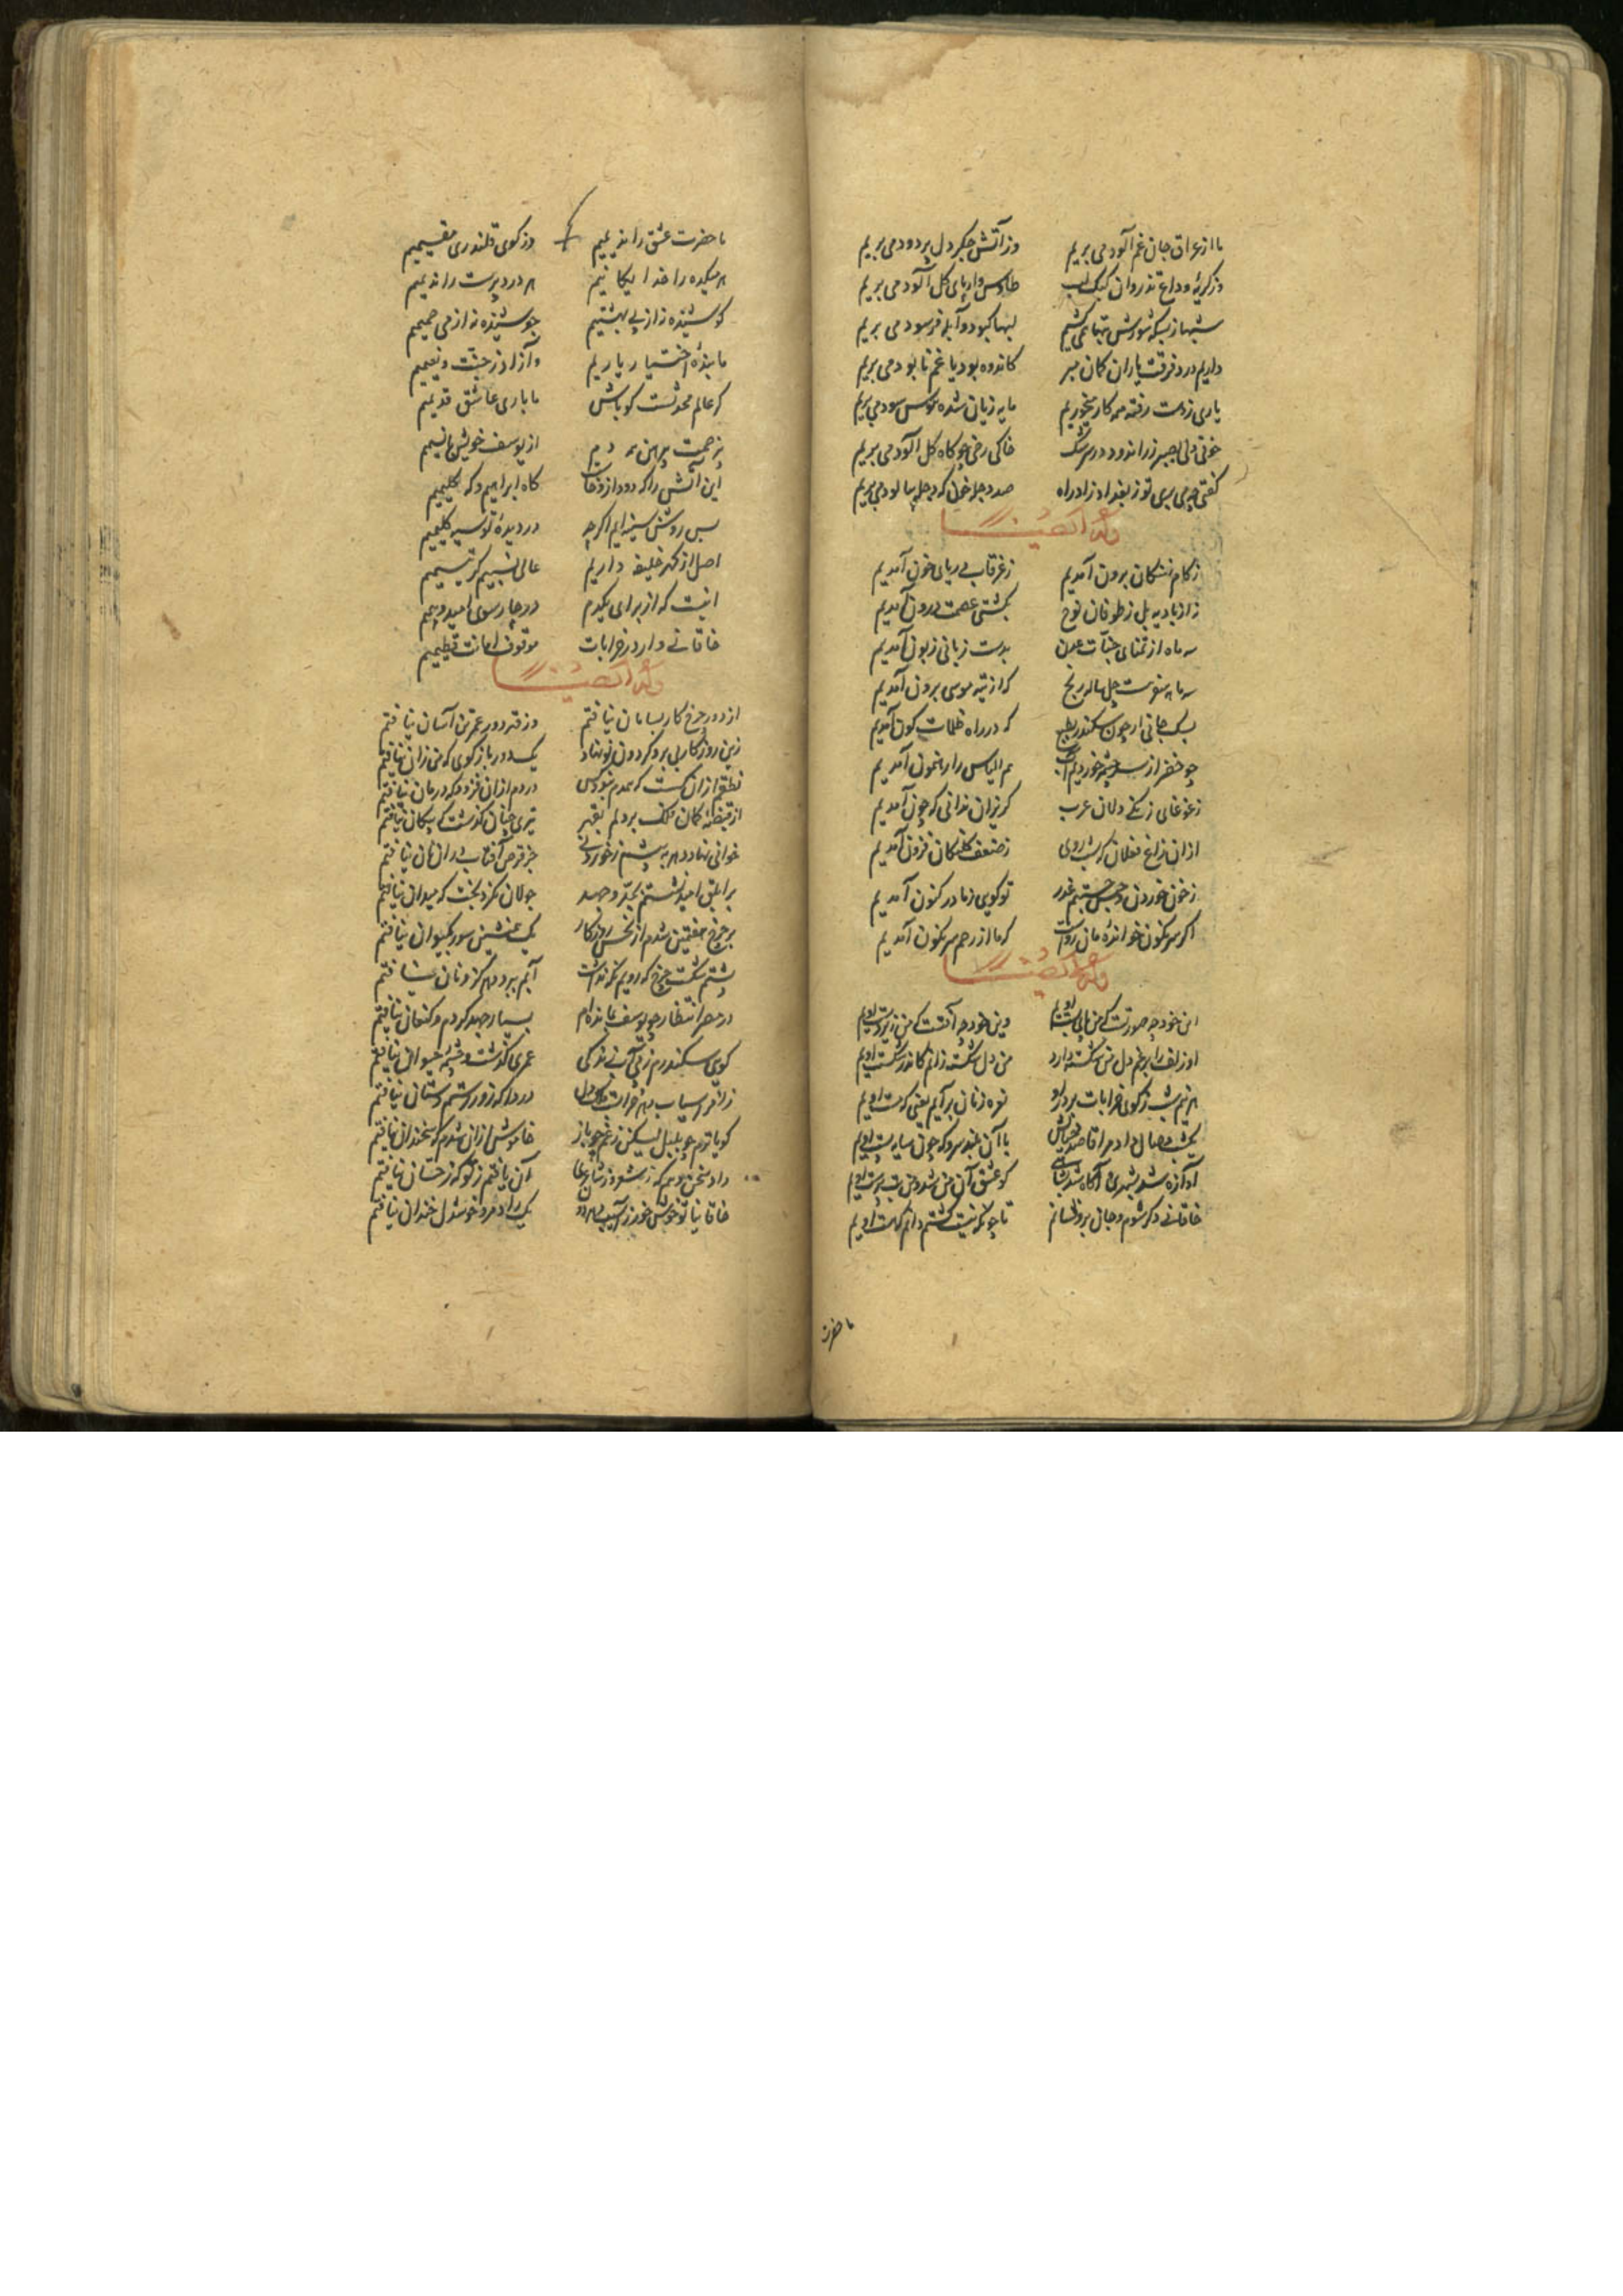 ما از عراق جان غم آلود می بریم وز آتش جگر دل پر دود می بریم
وز گریه وداع تذروان کبک لب طاوس وار پای گل آلود می بریم
شبها ز بسکه سوزش تبها می کشیم لبها کبود و آبله فرسود می بریم
داریم درد فرقت یاران کمان مبر کاندوه بود یا غم نابود می بریم
یاری ز دست رفته غم کار میخوریم مایه زیان شده هوس سود می بریم
خونی دلی بصبر زراندود در سرشک خاکی رخی چو کاه گل آلود می بریم
گفتی چه می بری تو ز بغداد زاد راه صد دجله خون که دجله بپالود می بریم
وله ایضا
ز کام نهنگان برون آمدیم ز غرقاب دریای خون آمدیم
زاد بادیه بل ز طوفان نوح بکشتی عصمت درون آمدیم
سه ماه از تمنای جنات عدن بدست زبانی زبون آمدیم
سه ماهه سفر هست چل ساله رنج که از تیه موسی برون آمدیم
سبک جانی ار چون سکندر که در راه ظلمات کون آمدیم
چو خضر از سر چشمه خوردیم آب هم الیاس را رهنمون آمدیم
ز غوغای زنگی دلان عرب گریزان ندانی که چون آمدیم
از ان زاغ فعلان گه شب روی ز ضعف کلنگان فزون آمدیم
ز خون خوردن و حبس جستیم غدر تو گویی ز مادر کنون آمدیم
اگر سرنگون خوانده مان رواست که ما از رحم سرنگون آمدیم
وله ایضا
این خود چه صورتست که من پای بست اویم وین خود چه آفتست که من زیر دست اویم
او زلف را برغم دل من شکسته دارد من دل شکسته زانم کاندر شکست اویم
هر نیم شب ز کوی خرابات بر در او نعره زنان برآیم یعنی که مست اویم
یک شب وصال داد مرا قاصد خیالش با آن بلند سرو که چون سایه پست اویم
آوازه شد بشهری و آگاه شد کو عشق آن من شد و من بت پرست اویم
خاقانی دگر شوم و جان برو فشانم تا چونکه نیست گشتم دانم که هست اویم
ما حضرت
ما حضرت عشق را ندیمیم وز کوی قلندری مقیمیم
هم میکده را خدایگانیم هم درد پرست را ندیمیم
کوشیده نه از پی بهشتیم جوشیده نه از می حمیمیم
ما بنده اختیار یاریم وآزاد ز جنت و نعیمیم
گر عالم محدثست گو باش ما باری عاشق قدیمیم
نز حمت پیرهن همه دم از یوسف خویش با نسیمیم
این آتش را که دود از و خاست گاه ابراهیم و گه کلیمیم
بس روشن سینه ایم اگر چه در دیده تو سیه گلیمیم
اصل از گهر خلیفه داریم عالی نسبیم گر یتیمیم
اینست که از برای یکدم در چار سوی امید و بیمیم
خاقانی وار در خرابات موقوف امانت عظیمیم
وله ایضا
از دور چرخ کار بسامان نیافتم وز فته دور عمر تن آسان نیافتم
زین روزگار بی بر و گردون نو نهاد یکدور باز گوی که من زان نیافتم
نطقم ازان گسست که همدم نبود کس دردم ازان فزود که درمان نیافتم
از قبضه کمان فلک بر دلم بقهر تیری چنان گذشت که پیکان نیافتم
خوانی نهاد دهر به پیشم ز خوردنی جز قرص آفتاب در ان خوان نیافتم
بر ابلق امید نشستم بجد و جهد جولان نکرد بخت که میدان نیافتم
بر چرخ هفتمین شدم از نحس روزگار یک هم نشین سعد بکیوان نیافتم
پشتم شکست چرخ که رویم نگه نداشت آبم ببرد دهر کزو نان نیافتم
در مصر انتظار چو یوسف بمانده ام بسیار جهد کردم و کنعان نیافتم
گویی سکندرم ز پی آب زندگی عمری گذشت و چشمه حیوان نیافتم
ز افراسیاب دهر خرابست ملک دل دردا که زور رستم دستان نیافتم
گویا ترم چو بلبل لیکن ز غم چو باز خاموش ازان شدم که سخندان نیافتم
داد سخن دهم که ز شعر و ز شاعران آن یافتم ز که ز حسان نیافتم
خاقانیا تو خوش خور ز آسیب یک راد مرد خوشدل و خندان نیافتم